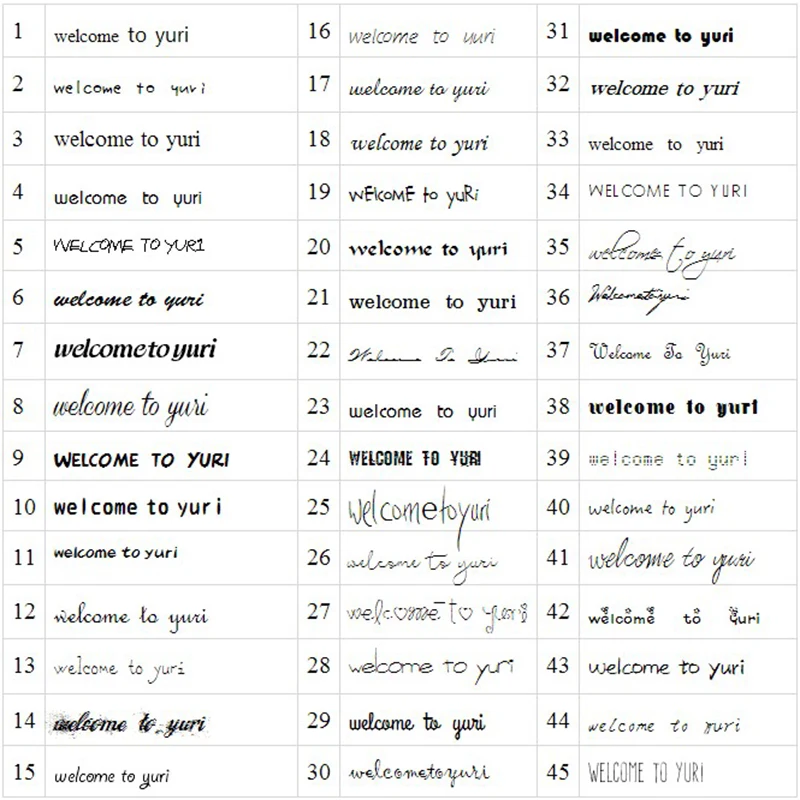 1 welcome to yuri 16 welcome to yuri 31 welcome to yuri
2 welcome to yuri 17 welcome to yuri 32 welcome to yuri
3 welcome to yuri 18 welcome to yuri 33 welcome to yuri
4 welcome to yuri 19 wElcomE to yuRi 34 WELCOME TO YURI
5 WELCOME TO YURI 20 welcome to yuri 35 welcome to yuri
6 welcome to yuri 21 welcome to yuri 36 Welcometoyuri
7 welcometoyuri 22 Welcome To Yuri 37 Welcome To Yuri
8 welcome to yuri 23 welcome to yuri 38 welcome to yuri
9 WELCOME TO YURI 24 WELCOME TO YURI 39 welcome to yuri
10 welcome to yuri 25 welcometoyuri 40 welcome to yuri
11 welcome to yuri 26 welcome to yuri 41 welcome to yuri
12 welcome to yuri 27 welcome to yuri 42 welcome to yuri
13 welcome to yuri 28 welcome to yuri 43 welcome to yuri
14 welcome to yuri 29 welcome to yuri 44 welcome to yuri
15 welcome to yuri 30 welcometoyuri 45 WELCOME TO YURI